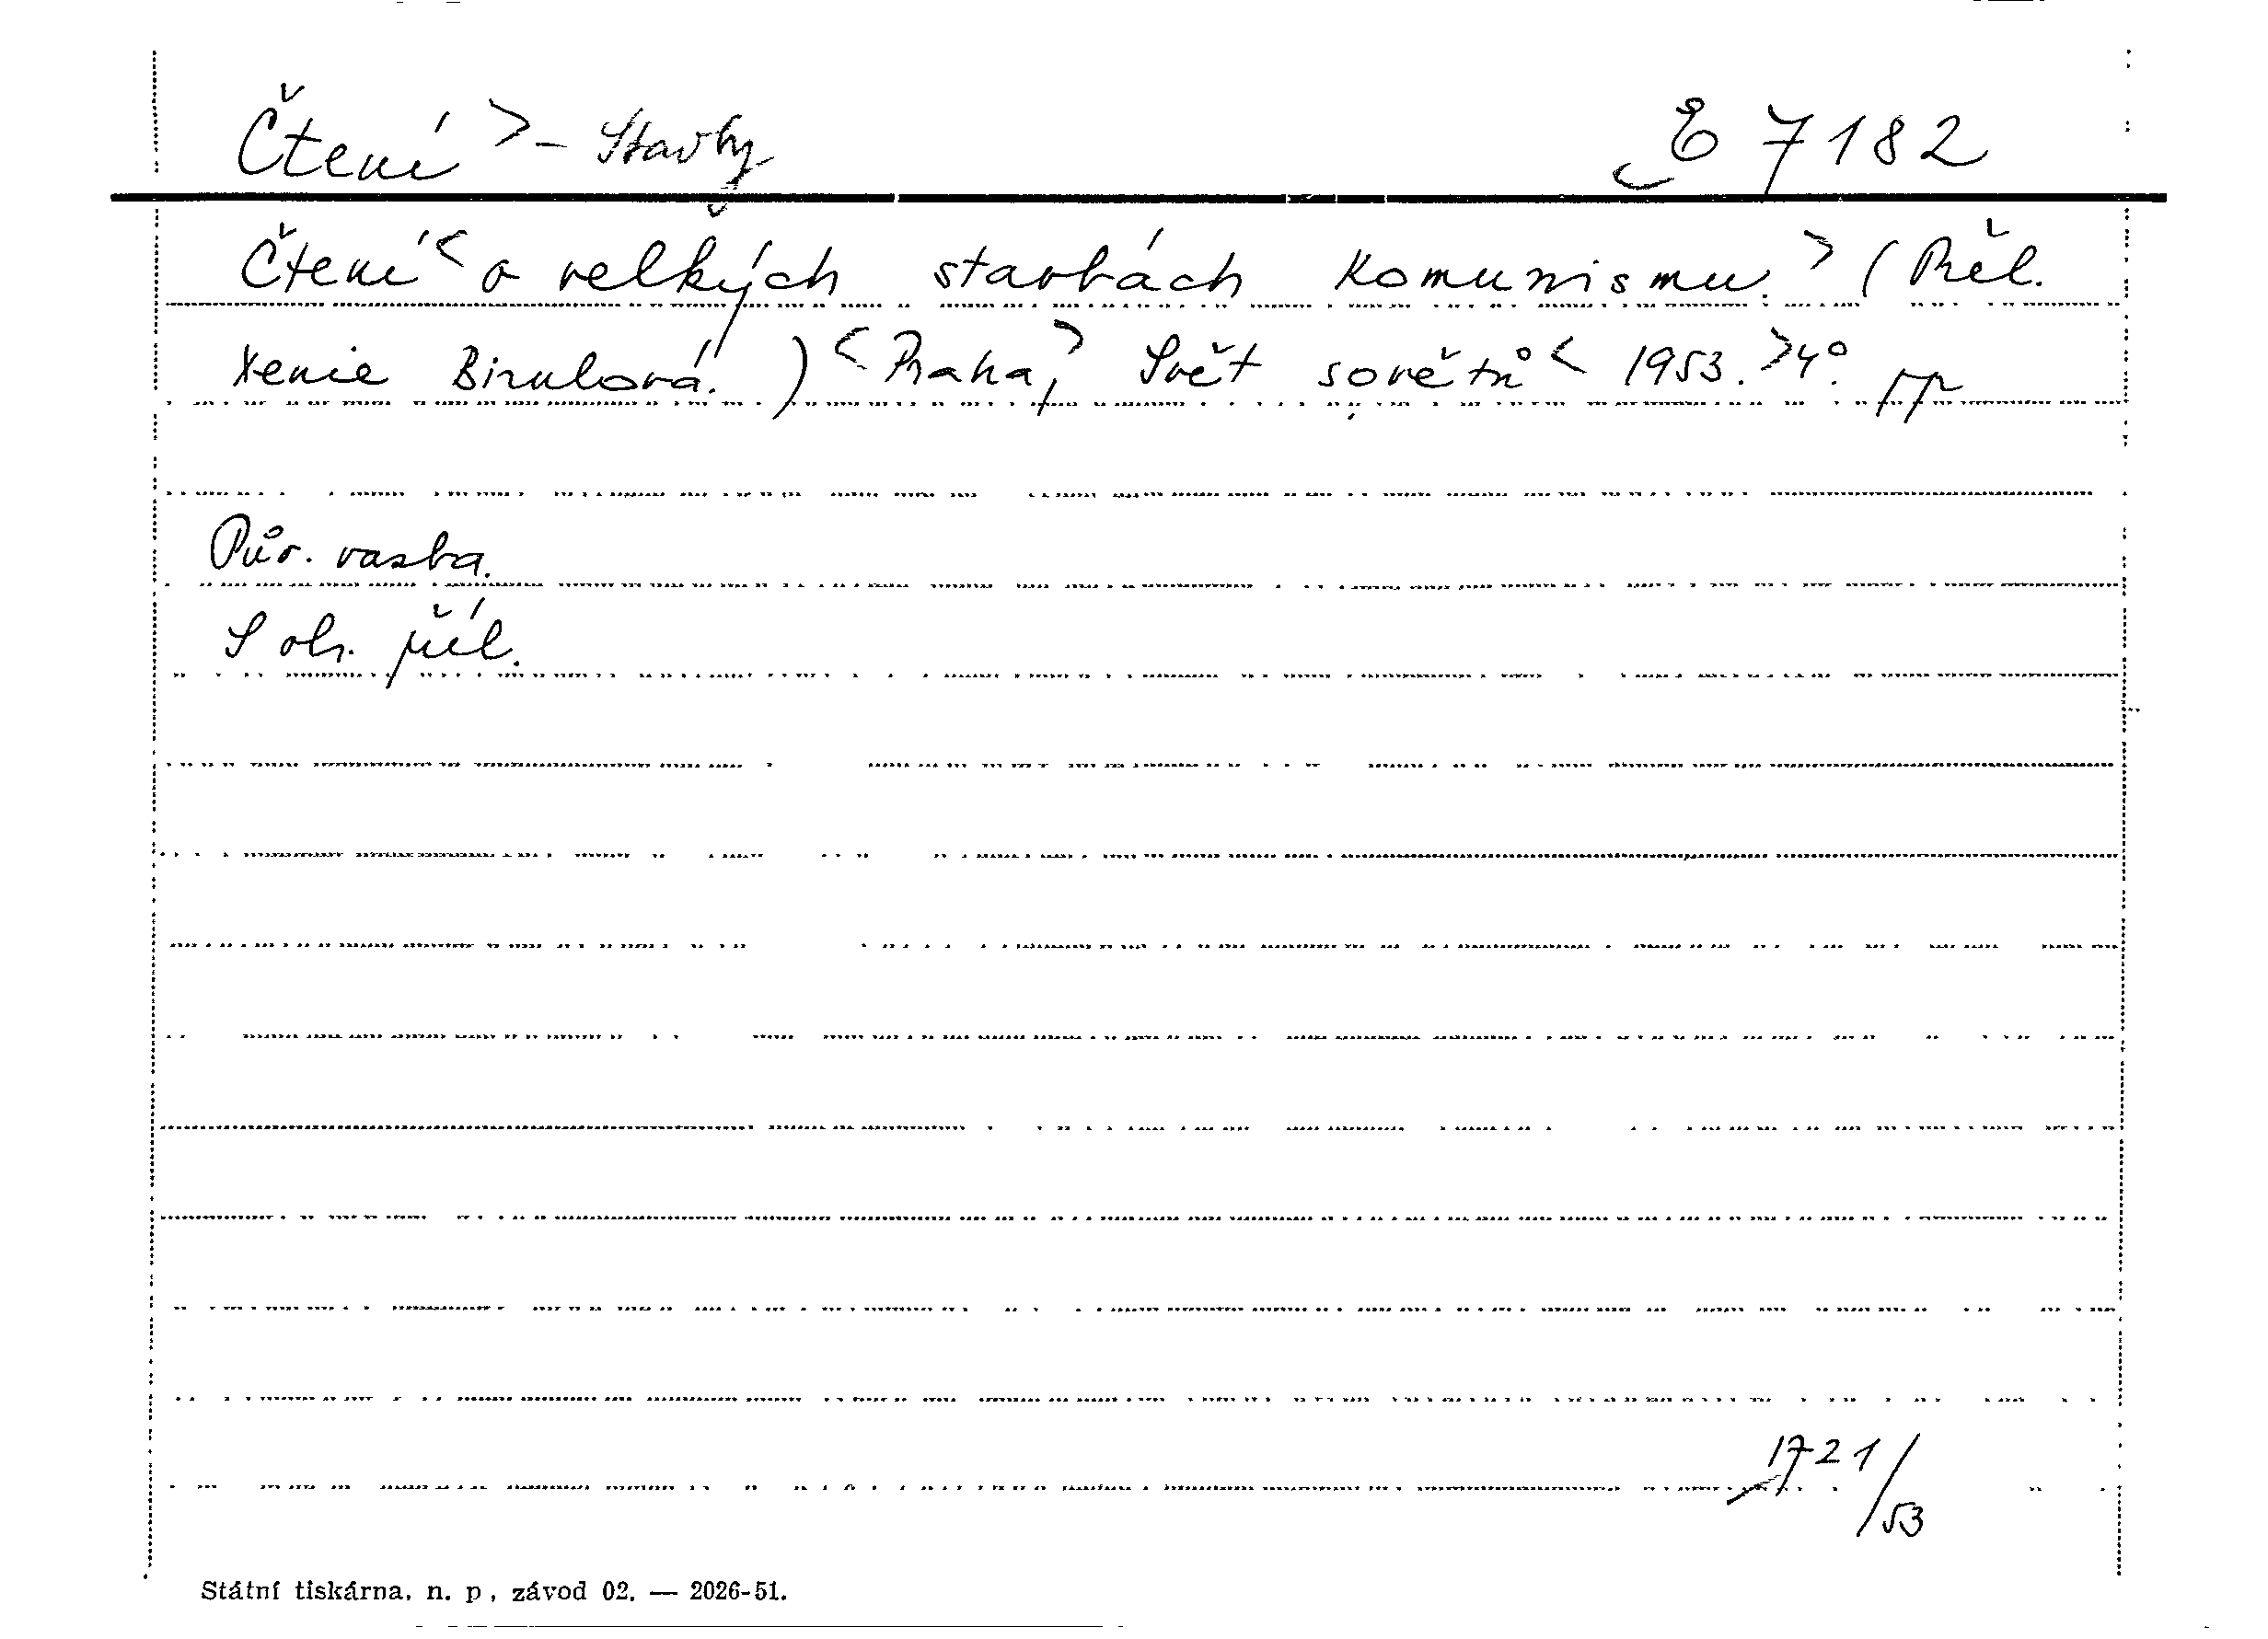 Čtení > - Stavby E 7182
Čtení < o velkých stavbách Komunismu. > (Přel.
Xenie Birulová.) < Praha, > Svět sovětů < 1953. > 4°.
Pův. vazba.
S obr. příl.
1721/53
Státní tiskárna, n. p., závod 02. — 2026-51.